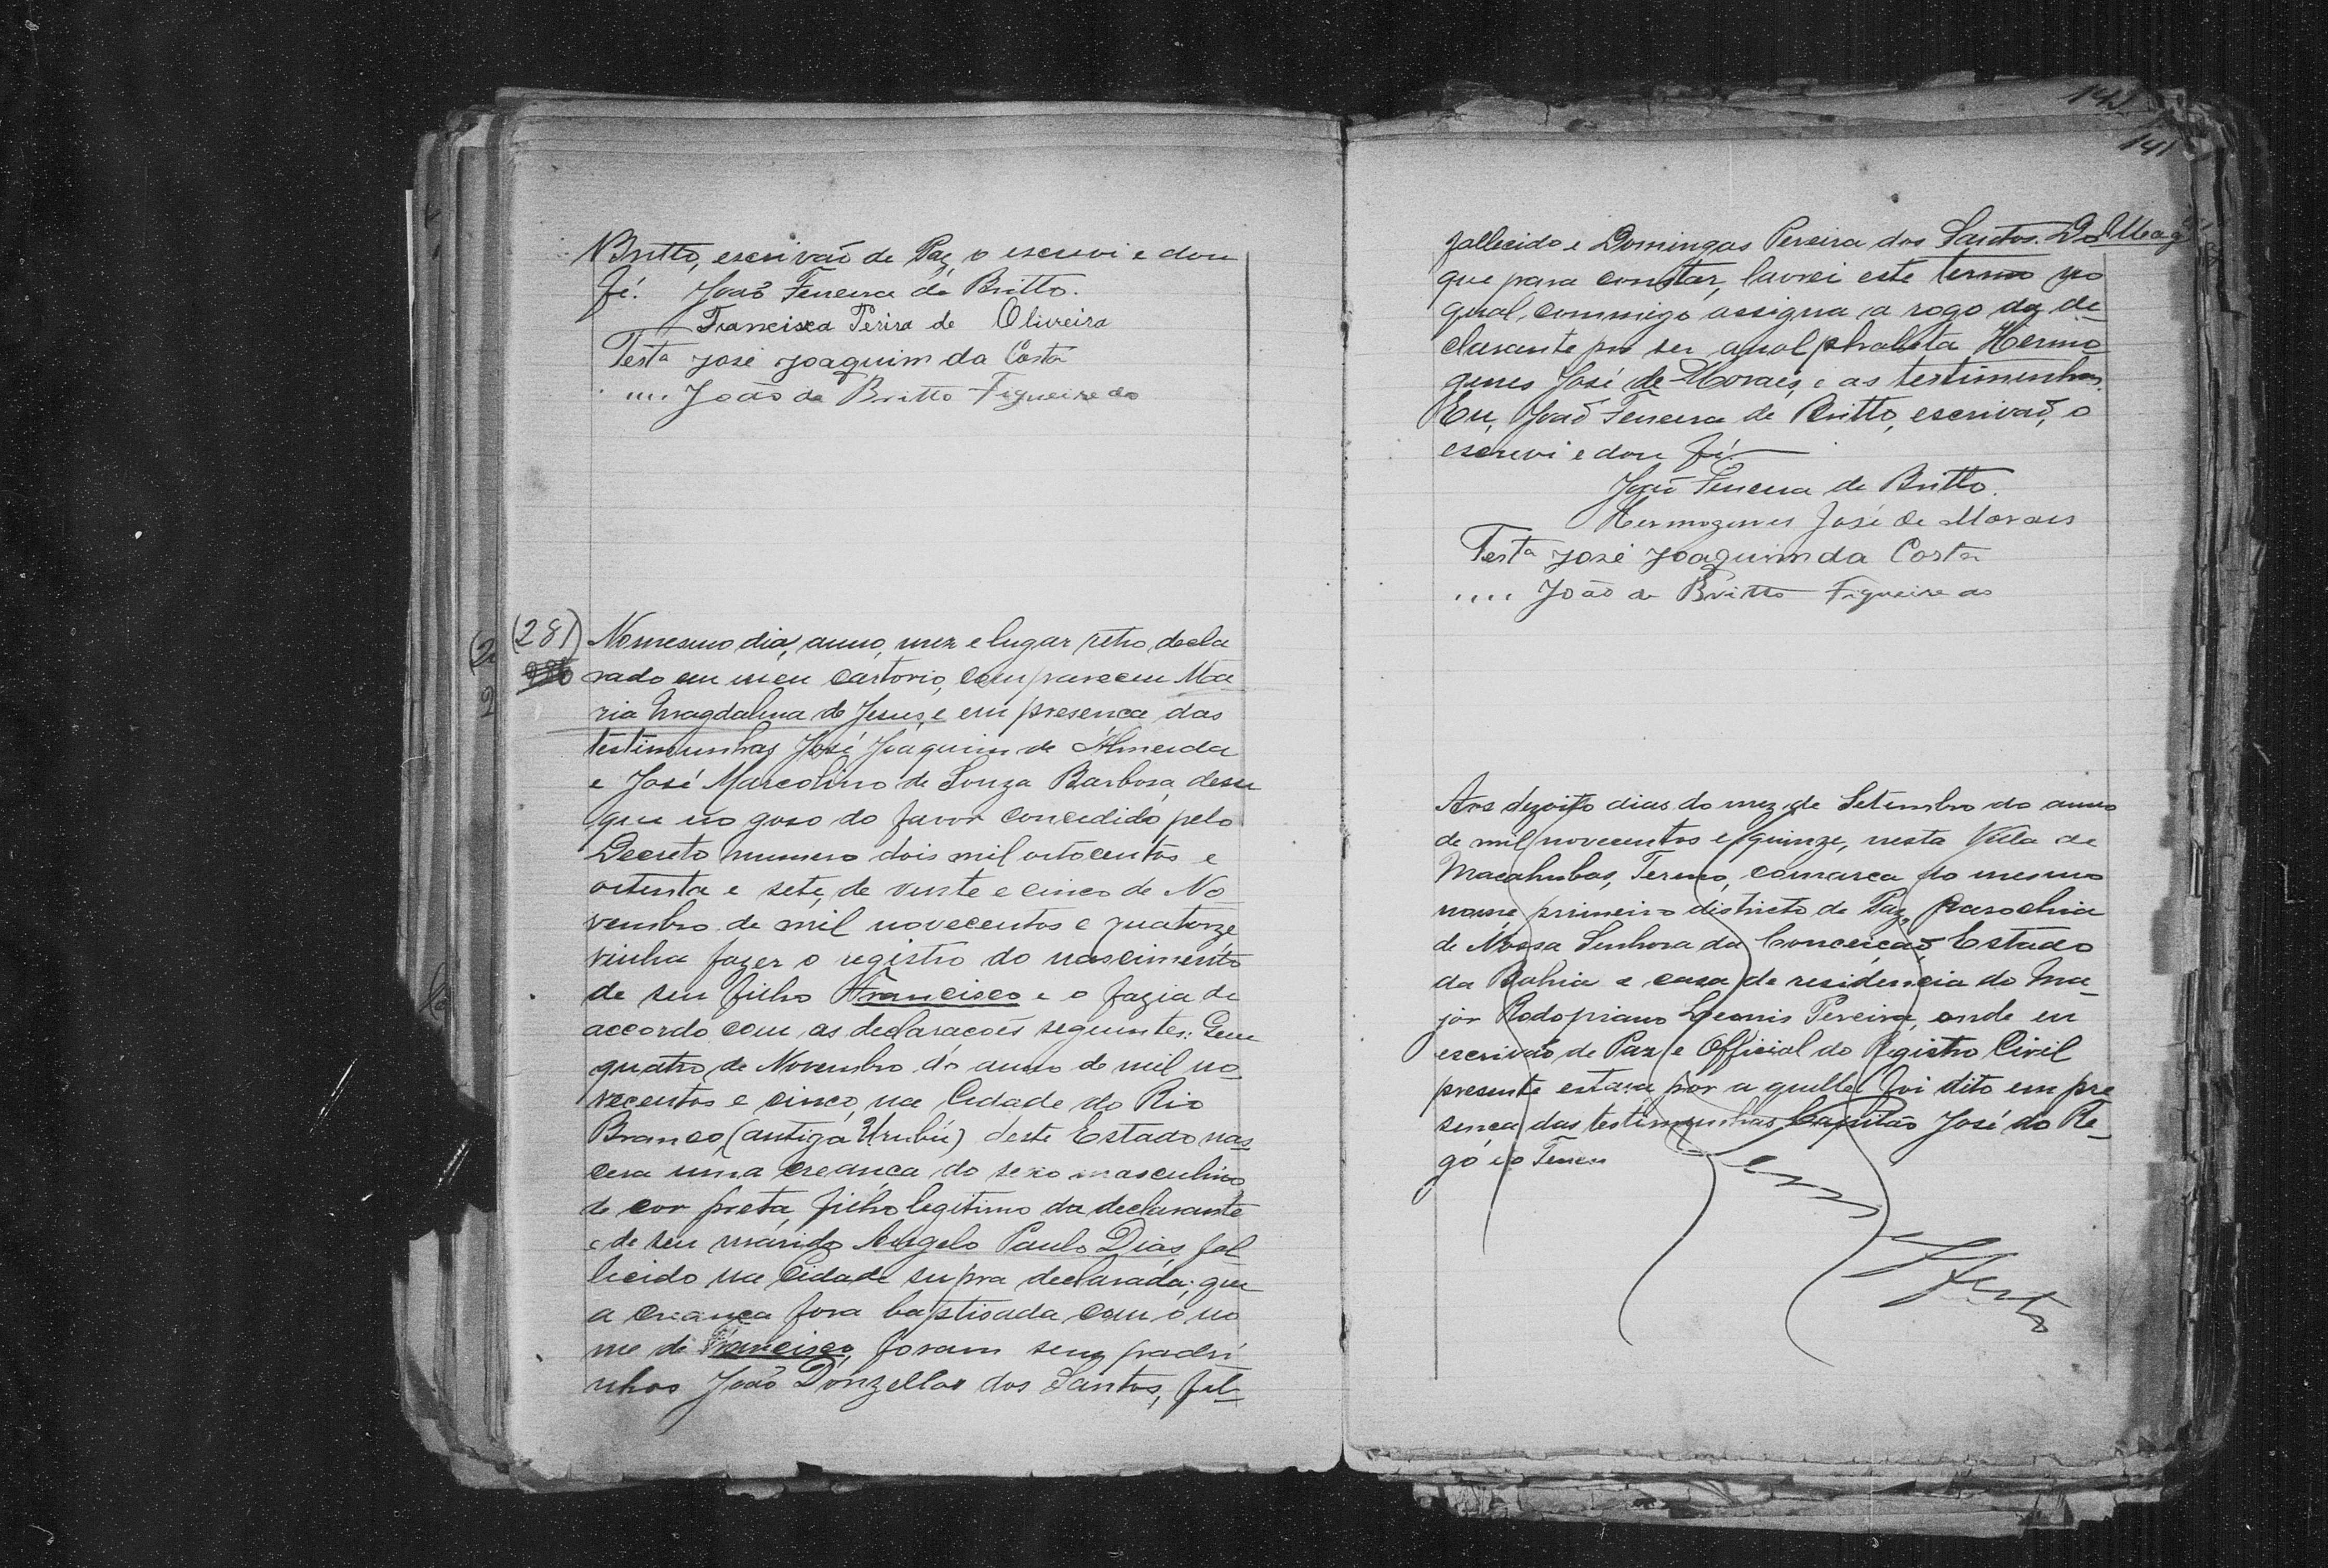 Britto, escrivão de Paz, o escrevi e dou
fé. João Ferreira de Britto.
Francisca Perira de Oliveira
Testa José Joaquim da Costa
.... João de Britto Figueiredo
(281) No mesmo dia, anno, mez e lugar retro decla
rado em meu cartorio, compareceu Ma
ria Magdalena de Jesus, e em presença das
testimunhas José Joaquim de Almeida
e José Marcolino de Souza Barbosa, disse
que no goso do favor concedido pelo
Decreto numero dois mil oitocentos e
oitenta e sete, de vinte e cinco de No
vembro de mil novecentos e quatorze
vinha fazer o registro do nascimento
de seu filho Francisco e o fazia de
accordo com as declaracoes seguintes: Que em
quatro de Novembro do anno de mil no
vecentos e cinco, na Cidade do Rio
Branco (antiga Urubú) deste Estado nas
cera uma creança do sexo masculino,
de cor preta, filho legitimo da declarante
e de seu marido Angelo Paulo Dias, fal
lecido na Cidade supra declarada; que
a creança fora baptisada com o no
me de Francisco, foram seus padri
nhos João Donzellas dos Santos, fal-
141
fallecido e Domingas Pereira dos Santos. Do
que para constar, lavrei este termo no
qual, commigo assigna a rogo da de
clarante por ser analphabeta Hermo
genes José de Moraes, e as testimunhas.
Eu, João Ferreira de Britto, escrivão, o
escrevi e dou fé.
João Ferreira de Britto.
Hermogenes José de Moraes
Testa José Joaquim da Costa
.... João de Britto Figueiredo
Aos dezoito dias do mez de Setembro do anno
de mil novecentos e quinze, nesta Villa de
Macahubas, Termo, comarca do mesmo
nome primeiro districto de Paz, Parochia
de Nossa Senhora da Conceição Estado
da Bahia e casa de residencia do Ma-
jor Rodopiano Leonis Pereira, onde eu
escrivão de Paz e Official do Registro Civil
presente estava por aquelle foi dito em pre
sença das testimunhas Capitão José do Re-
go e o
Sem effeito